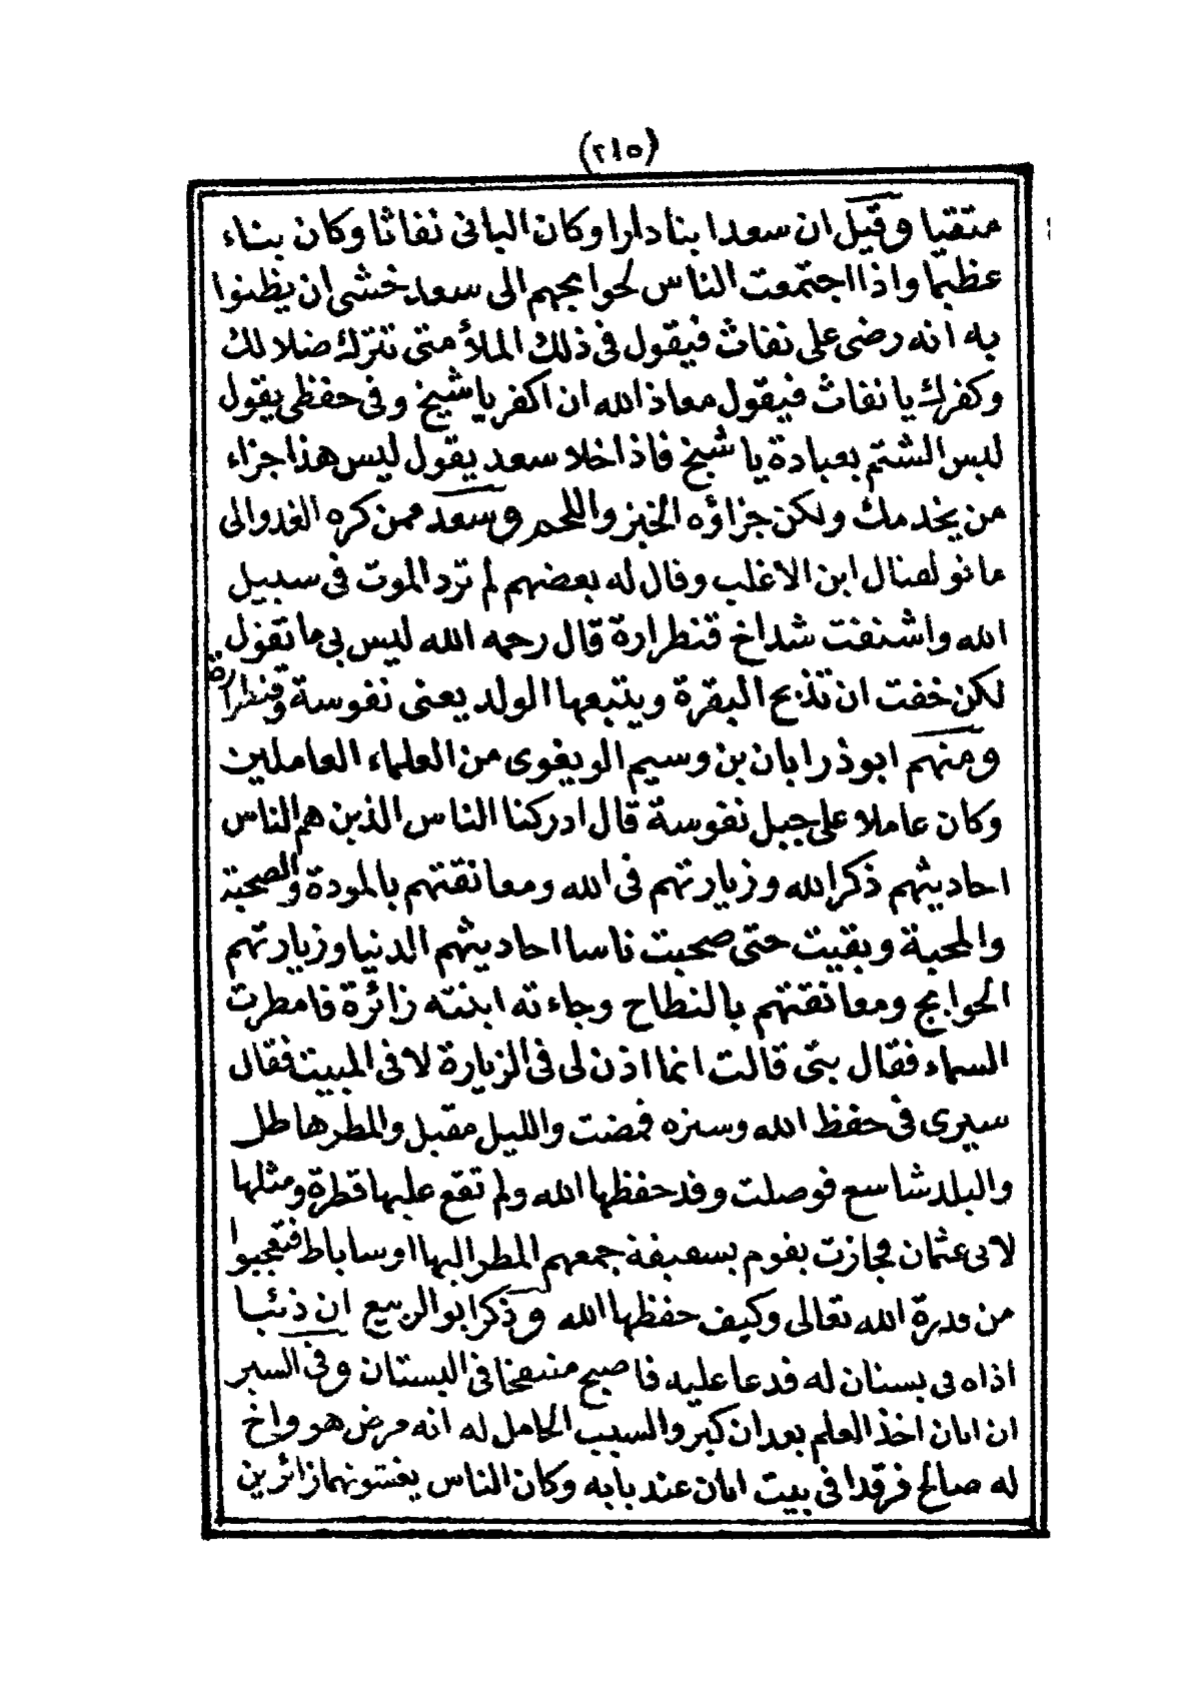 (٢١٥)
متقيا وقيل ان سعدا بنا دارا وكان البانى نفاثا وكان بناء
عظيما واذا اجتمعت الناس لحوايجهم الى سعد خشى ان يظنوا
به انه رضى على نفاث فيقول فى ذلك الملأ متى تترك ضلالك
وكفرك يا نفاث فيقول معاذ الله ان اكفر يا شيخ وفى حفظى يقول
ليس الشتم بعبادة يا شيخ فاذا خلا سعد يقول ليس هذا جزاء
من يخدمك ولكن جزاؤه الخبز واللحم وسعد ممن كره الغدو الى
مانو لقتال ابن الاغلب وقال له بعضهم لم ترد الموت فى سبيل
الله واشنفت شداخ قنطرارة قال رحمه الله ليس بى ما تقول
لكن خفت ان تذبح البقرة ويتبعها الولد يعنى نفوسة وقنطرارة
ومنهم ابوذر ابان بن وسيم الويغوى من العلماء العاملين
وكان عاملا على جبل نفوسة قال ادركنا الناس الذين هم الناس
احاديثهم ذكر الله وزيارتهم فى الله ومعانقتهم بالمودة والصحبة
والمحبة وبقيت حتى صحبت ناسا احاديثهم الدنيا وزيارتهم
الحوايج ومعانقتهم بالنطاح وجاءته ابنته زائرة فامطرت
السماء فقال بتى قالت انما اذن لى فى الزيارة لا فى المبيت فقال
سيرى فى حفظ الله وستره فمضت والليل مقبل والمطر هاطل
والبلد شاسع فوصلت وقد حفظها الله ولم تقع عليها قطرة ومثلها
لابى عثمان فجازت بقوم بسقيفة جمعهم المطر اليها او ساباط فتعجبوا
من قدرة الله تعالى وكيف حفظها الله وذكر ابو الربيع ان ذئبا
اذاه فى بستان له فدعا عليه فاصبح منتفخا فى البستان وفى السير
ان ابان اخذ العلم بعد ان كبر والسبب الحامل له انه مرض هو واخ
له صالح فرقدا فى بيت ابان عند بابه وكان الناس يغشونهما زائرين